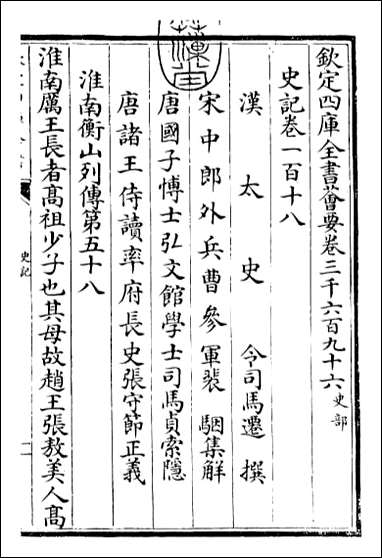 欽定四庫全書薈要卷三千六百九十六 史部
史記卷一百十八
漢太史令司馬遷撰
宋中郎外兵曹參軍裴駰集解
唐國子博士弘文館學士司馬貞索隱
唐諸王侍讀率府長史張守節正義
淮南衡山列傳第五十八
淮南厲王長者髙祖少子也其母故趙王張敖美人髙
史記